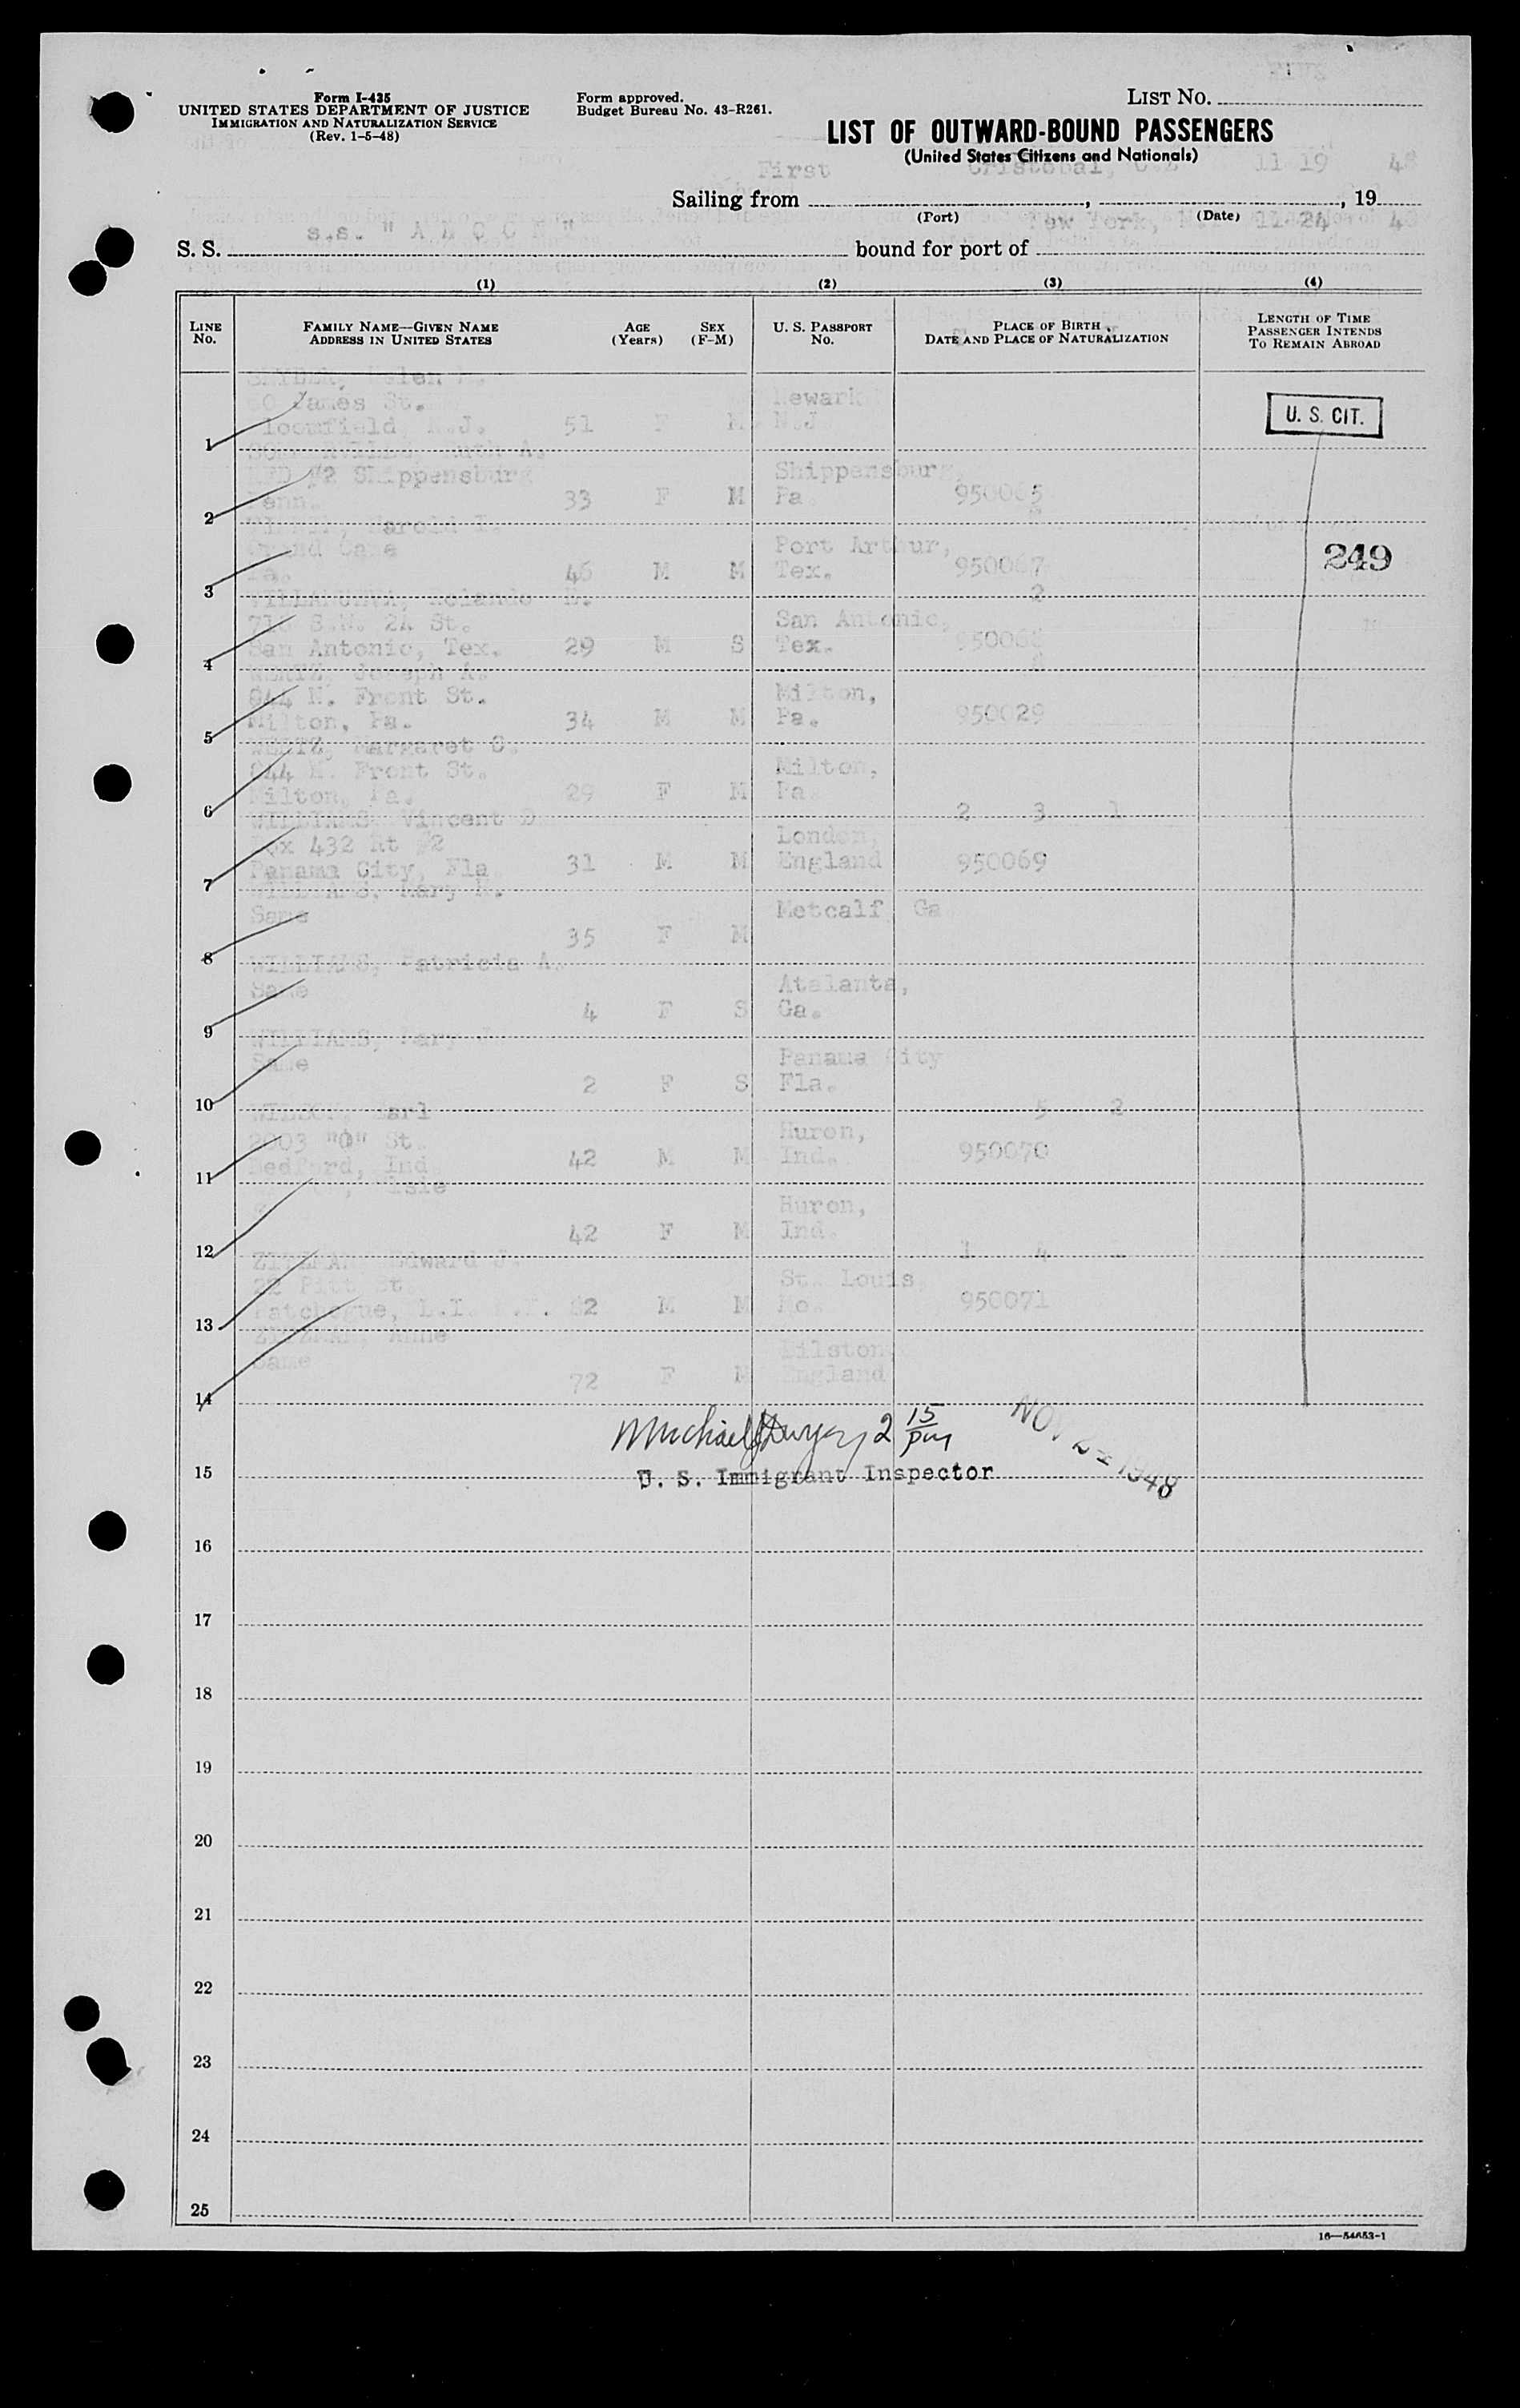 Form I-435
UNITED STATES DEPARTMENT OF JUSTICE
IMMIGRATION AND NATURALIZATION SERVICE
(Rev. 1-5-48)
Form approved.
Budget Bureau No. 43-R261.
LIST NO.
LIST OF OUTWARD-BOUND PASSENGERS
(United States Citizens and Nationals)
First Cristobal, 11 19 48
Sailing from , , 19
(Port) (Date)
New York, 11-24 48
s.s. "ANCON"
S. S. bound for port of
(1) (2) (3) (4)
LINE No.
FAMILY NAME—GIVEN NAME
ADDRESS IN UNITED STATES
AGE (Years)
SEX (F-M)
U. S. PASSPORT No.
PLACE OF BIRTH,
DATE AND PLACE OF NATURALIZATION
LENGTH OF TIME
PASSENGER INTENDS
TO REMAIN ABROAD
SNYDER, Helen
James St. Newark
U. S. CIT.
1 Bloomfield, N.J. 51 F M N.J.
SOMERVILLE, Ruth A.
RFD #2 Shippensburg Shippensburg,
2 Penn. 33 F M Pa. 950065
Harold
Grand Cane Port Arthur,
249
3 46 M M Tex. 950067
VILLANUEVA, Rolando 2
S.W. St. San Antonio,
4 San Antonio, Tex. 29 M S Tex. 950068
WERTZ, Joseph A.
844 N. Front St. Milton,
5 Milton, Pa. 34 M M Pa. 950029
WERTZ, Margaret C.
844 N. Front St. Milton,
6 Milton, Pa. 29 F M Pa.
WILLIAMS, Vincent D 2 3 1
Box 432 Rt #2 London,
7 Panama City, Fla 31 M M England 950069
WILLIAMS, Mary
Same Metcalf, Ga
8 35 F M
WILLIAMS, Patricia A.
Same Atalanta,
9 4 F S Ga.
WILLIAMS, Mary J.
Same Panama City
10 2 F S Fla.
WILSON, Earl 5 2
2003 "O" St. Huron,
11 Bedford, Ind. 42 M M Ind. 950070
Elsie
Huron,
12 42 F M Ind.
Edward J. 1 4 -
22 Pitt St. St. Louis,
13 Patchogue, L.I. N.Y. 82 M M Mo. 950071
Anne
Same
14 72 F M England
Michael J Dwyer 2 15 pm
NOV 24 1948
15 U. S. Immigrant Inspector
16
17
18
19
20
21
22
23
24
25
16—54653-1